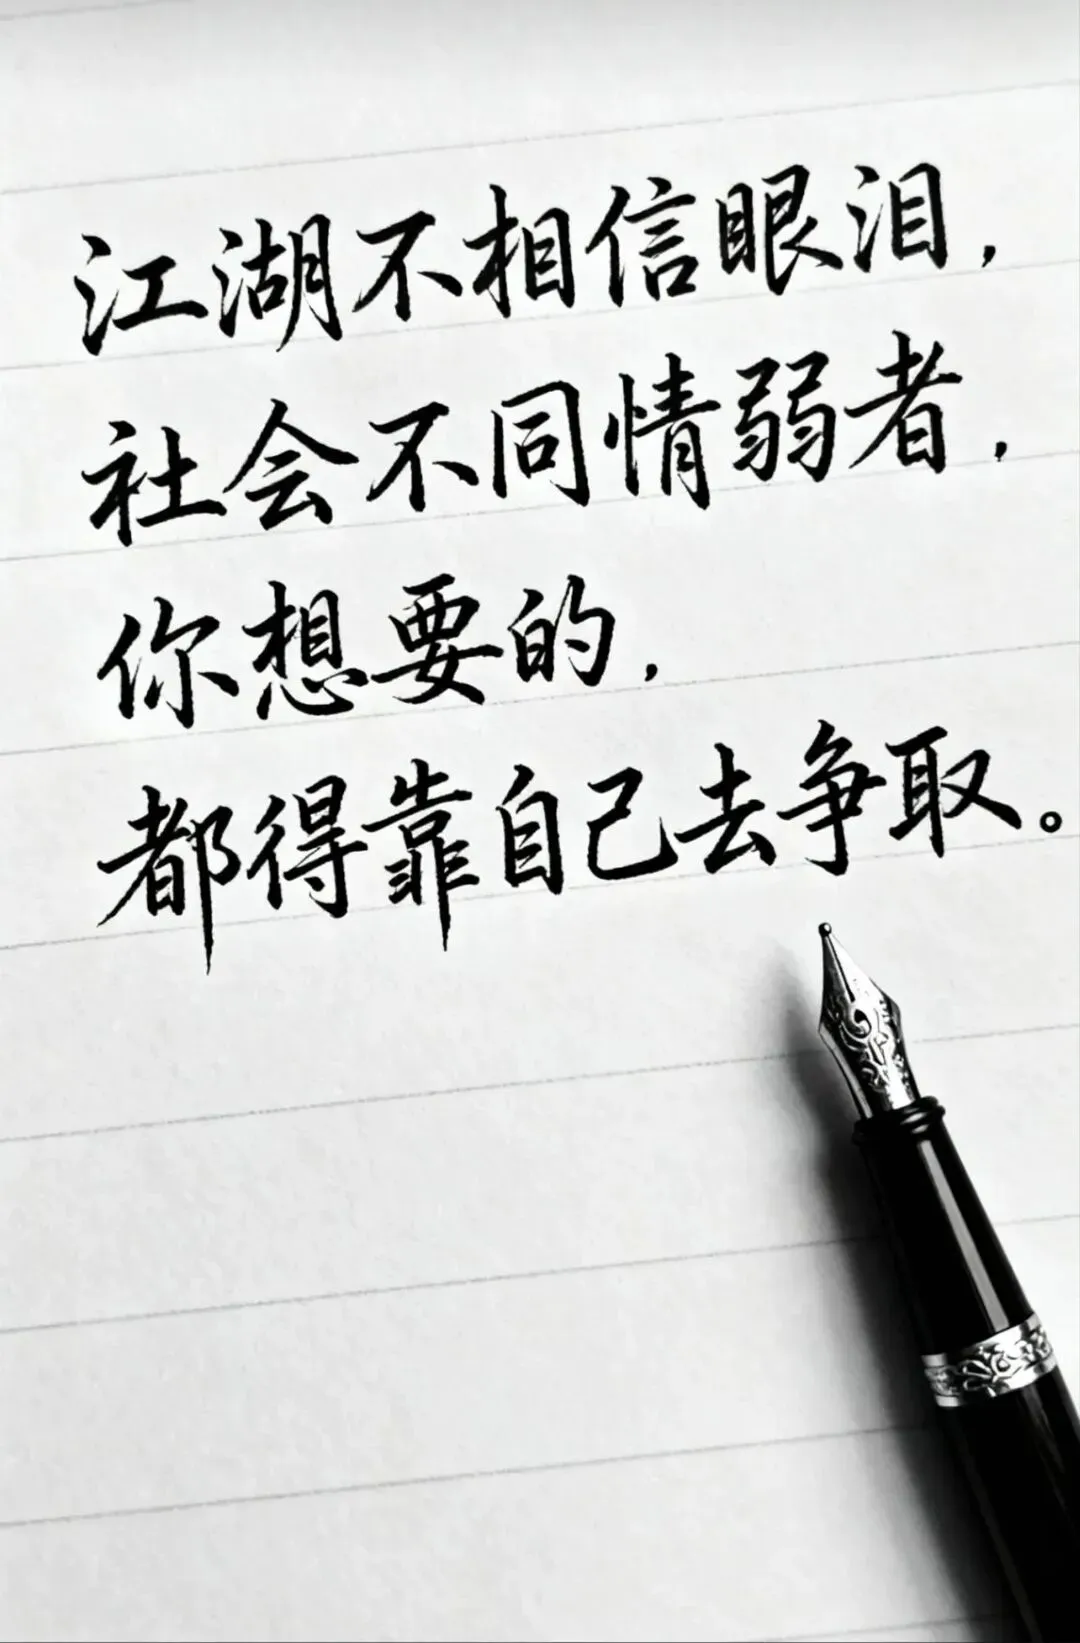 江湖不相信眼泪，
社会不同情弱者，
你想要的，
都得靠自己去争取。